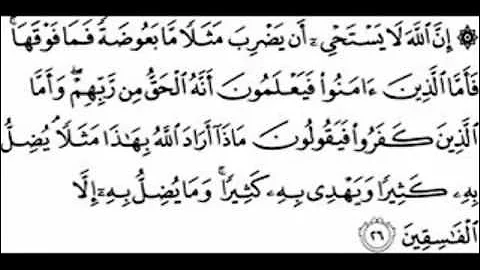 ۞ إِنَّ ٱللَّهَ لَا يَسْتَحْىِۦٓ أَن يَضْرِبَ مَثَلًا مَّا بَعُوضَةً فَمَا فَوْقَهَا ۚ
فَأَمَّا ٱلَّذِينَ ءَامَنُوا۟ فَيَعْلَمُونَ أَنَّهُ ٱلْحَقُّ مِن رَّبِّهِمْ ۖ وَأَمَّا
ٱلَّذِينَ كَفَرُوا۟ فَيَقُولُونَ مَاذَآ أَرَادَ ٱللَّهُ بِهَـٰذَا مَثَلًا ۘ يُضِلُّ
بِهِۦ كَثِيرًا وَيَهْدِى بِهِۦ كَثِيرًا ۚ وَمَا يُضِلُّ بِهِۦٓ إِلَّا
ٱلْفَـٰسِقِينَ ۝٢٦